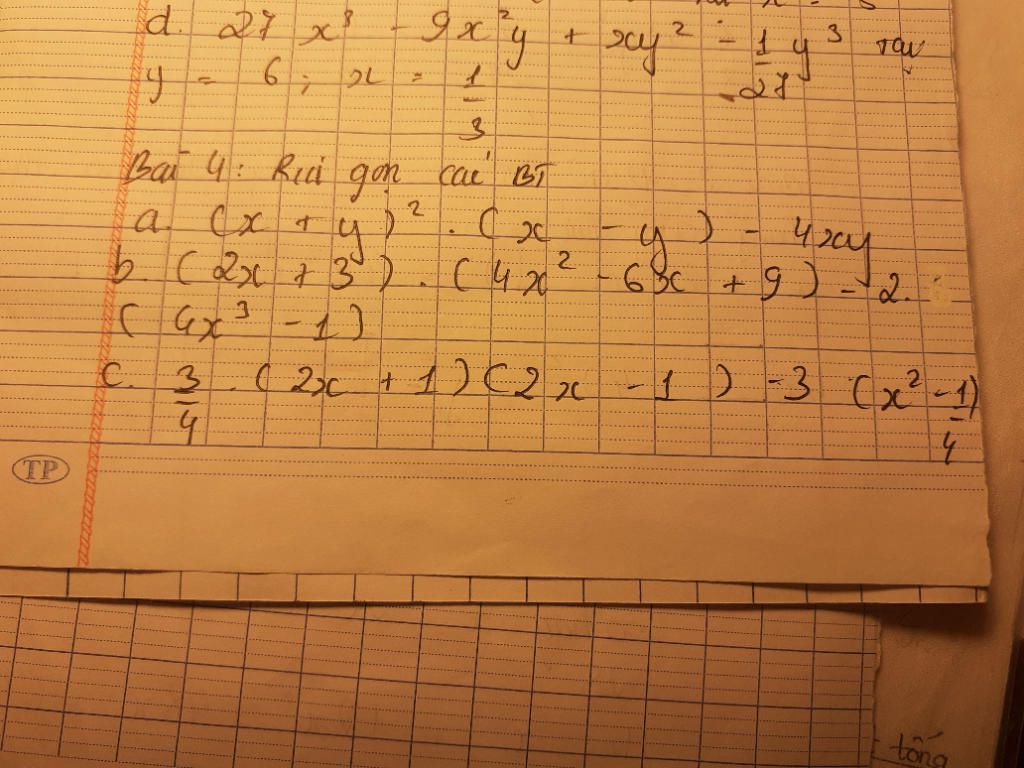 d. 27 x³ - 9x²y + xy² - 1/27 y³ tại
y = 6 ; x = 1/3
Bài 4 : Rút gọn các BT
a. (x + y)² . (x - y) - 4xy
b. (2x + 3) . (4x² - 6x + 9) - 2.
(4x³ - 1)
c. 3/4 . (2x + 1)(2x - 1) - 3 (x² - 1/4)
TP
tổng